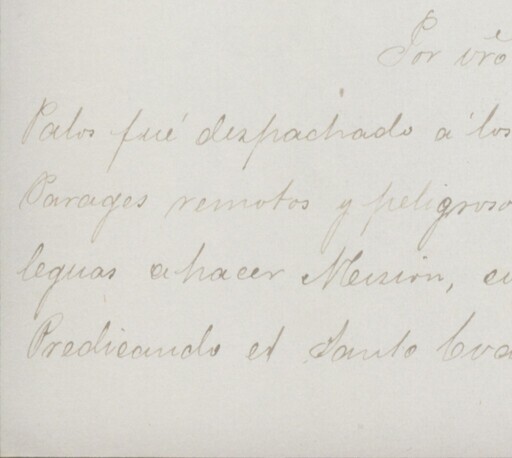 Por orõ
Palos fué despachado á los
Parages remotos y peligroso
leguas a hacer Mision, cu
Predicando el Santo Eva